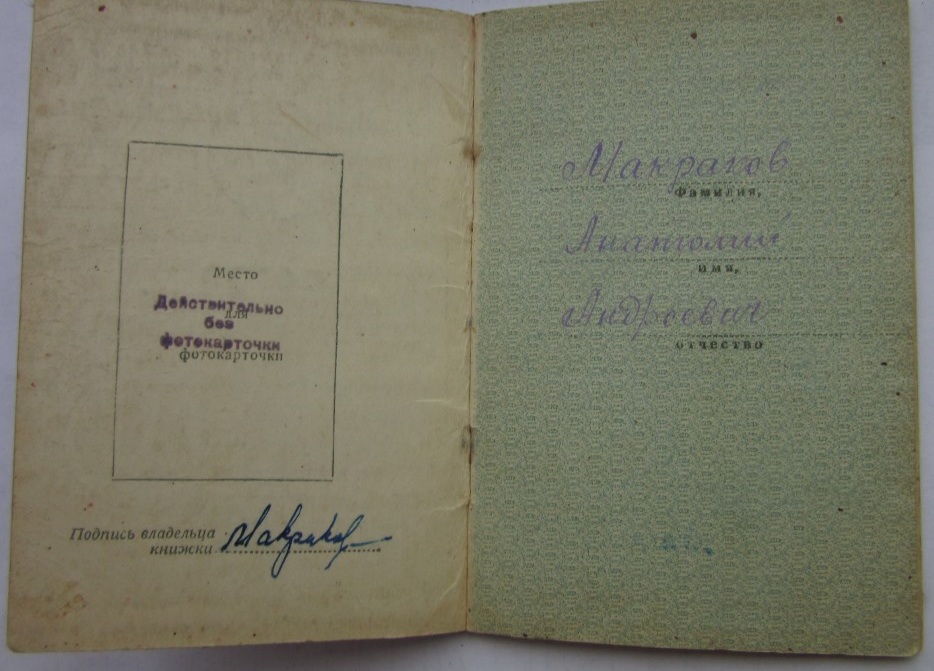 Место
для
фотокарточки
Действительно
без
фотокарточки
Подпись владельца
книжки Макраков
Макраков
Фамилия,
Анатолий
имя,
Андреевич
отчество